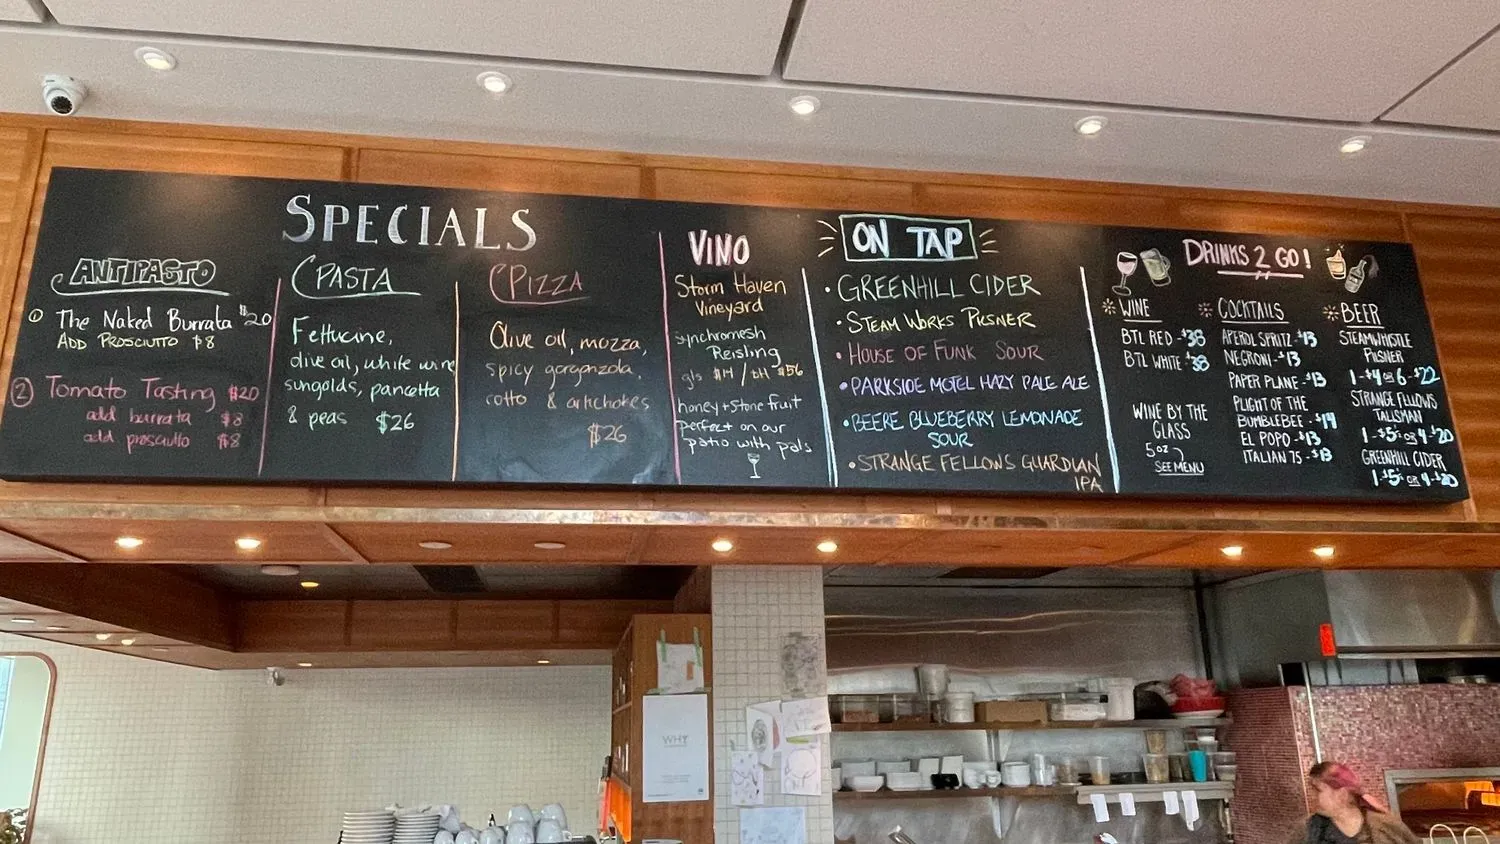 SPECIALS
ANTIPASTO
① The Naked Burrata $20
ADD PROSCIUTTO $8
② Tomato Tasting $20
add burrata $8
add prosciutto $8
PASTA
Fettucine,
olive oil, white wine
sungolds, pancetta
& peas $26
PIZZA
Olive oil, mozza,
spicy gorgonzola,
cotto & artichokes
$26
VINO
Storm Haven
Vineyard
Synchromesh
Reisling
gls $14 / btl $56
honey + stone fruit
perfect on our
patio with pals
ON TAP
• GREENHILL CIDER
• STEAM WORKS PILSNER
• HOUSE OF FUNK SOUR
• PARKSIDE MOTEL HAZY PALE ALE
• BEERE BLUEBERRY LEMONADE
SOUR
• STRANGE FELLOWS GUARDIAN
IPA
DRINKS 2 GO!
WINE
BTL RED - $38
BTL WHITE - $38
WINE BY THE
GLASS
5oz
SEE MENU
COCKTAILS
APEROL SPRITZ - $13
NEGRONI - $13
PAPER PLANE - $13
PLIGHT OF THE
BUMBLEBEE - $14
EL POPO - $13
ITALIAN 75 - $13
BEER
STEAMWHISTLE
PILSNER
1 - $4 OR 6 - $22
STRANGE FELLOWS
TALISMAN
1 - $5 OR 4 - $20
GREENHILL CIDER
1 - $5 OR 4 - $20
WHY